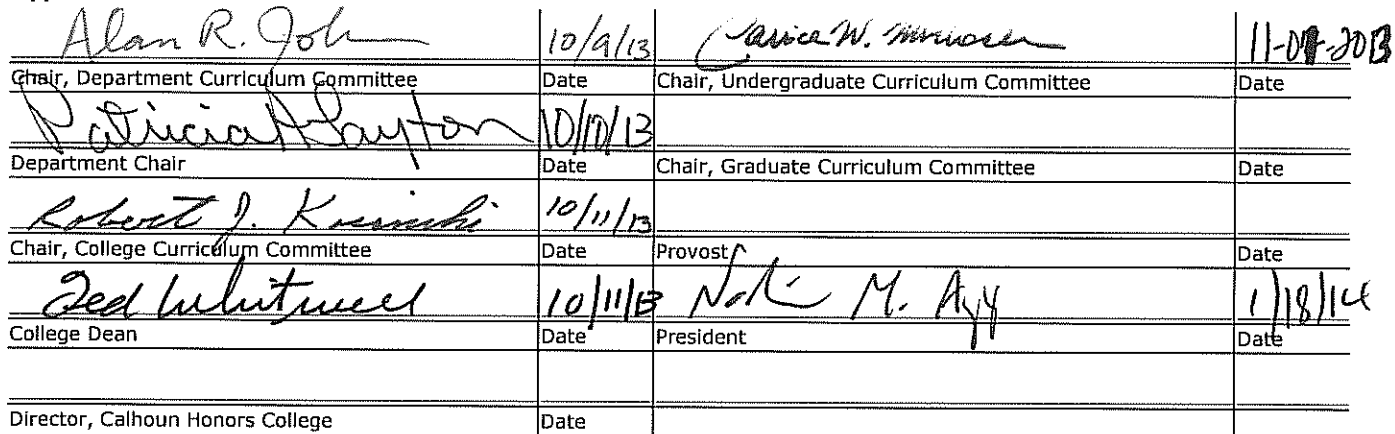 Alan R. Joh 10/9/13 Janice W. 11-07-2013
Chair, Department Curriculum Committee Date Chair, Undergraduate Curriculum Committee Date
Patricia A Layton 10/10/13
Department Chair Date Chair, Graduate Curriculum Committee Date
Robert J. Kosinski 10/11/13
Chair, College Curriculum Committee Date Provost Date
Ted Whitwell 10/11/13 M. 1/18/14
College Dean Date President Date
Director, Calhoun Honors College Date